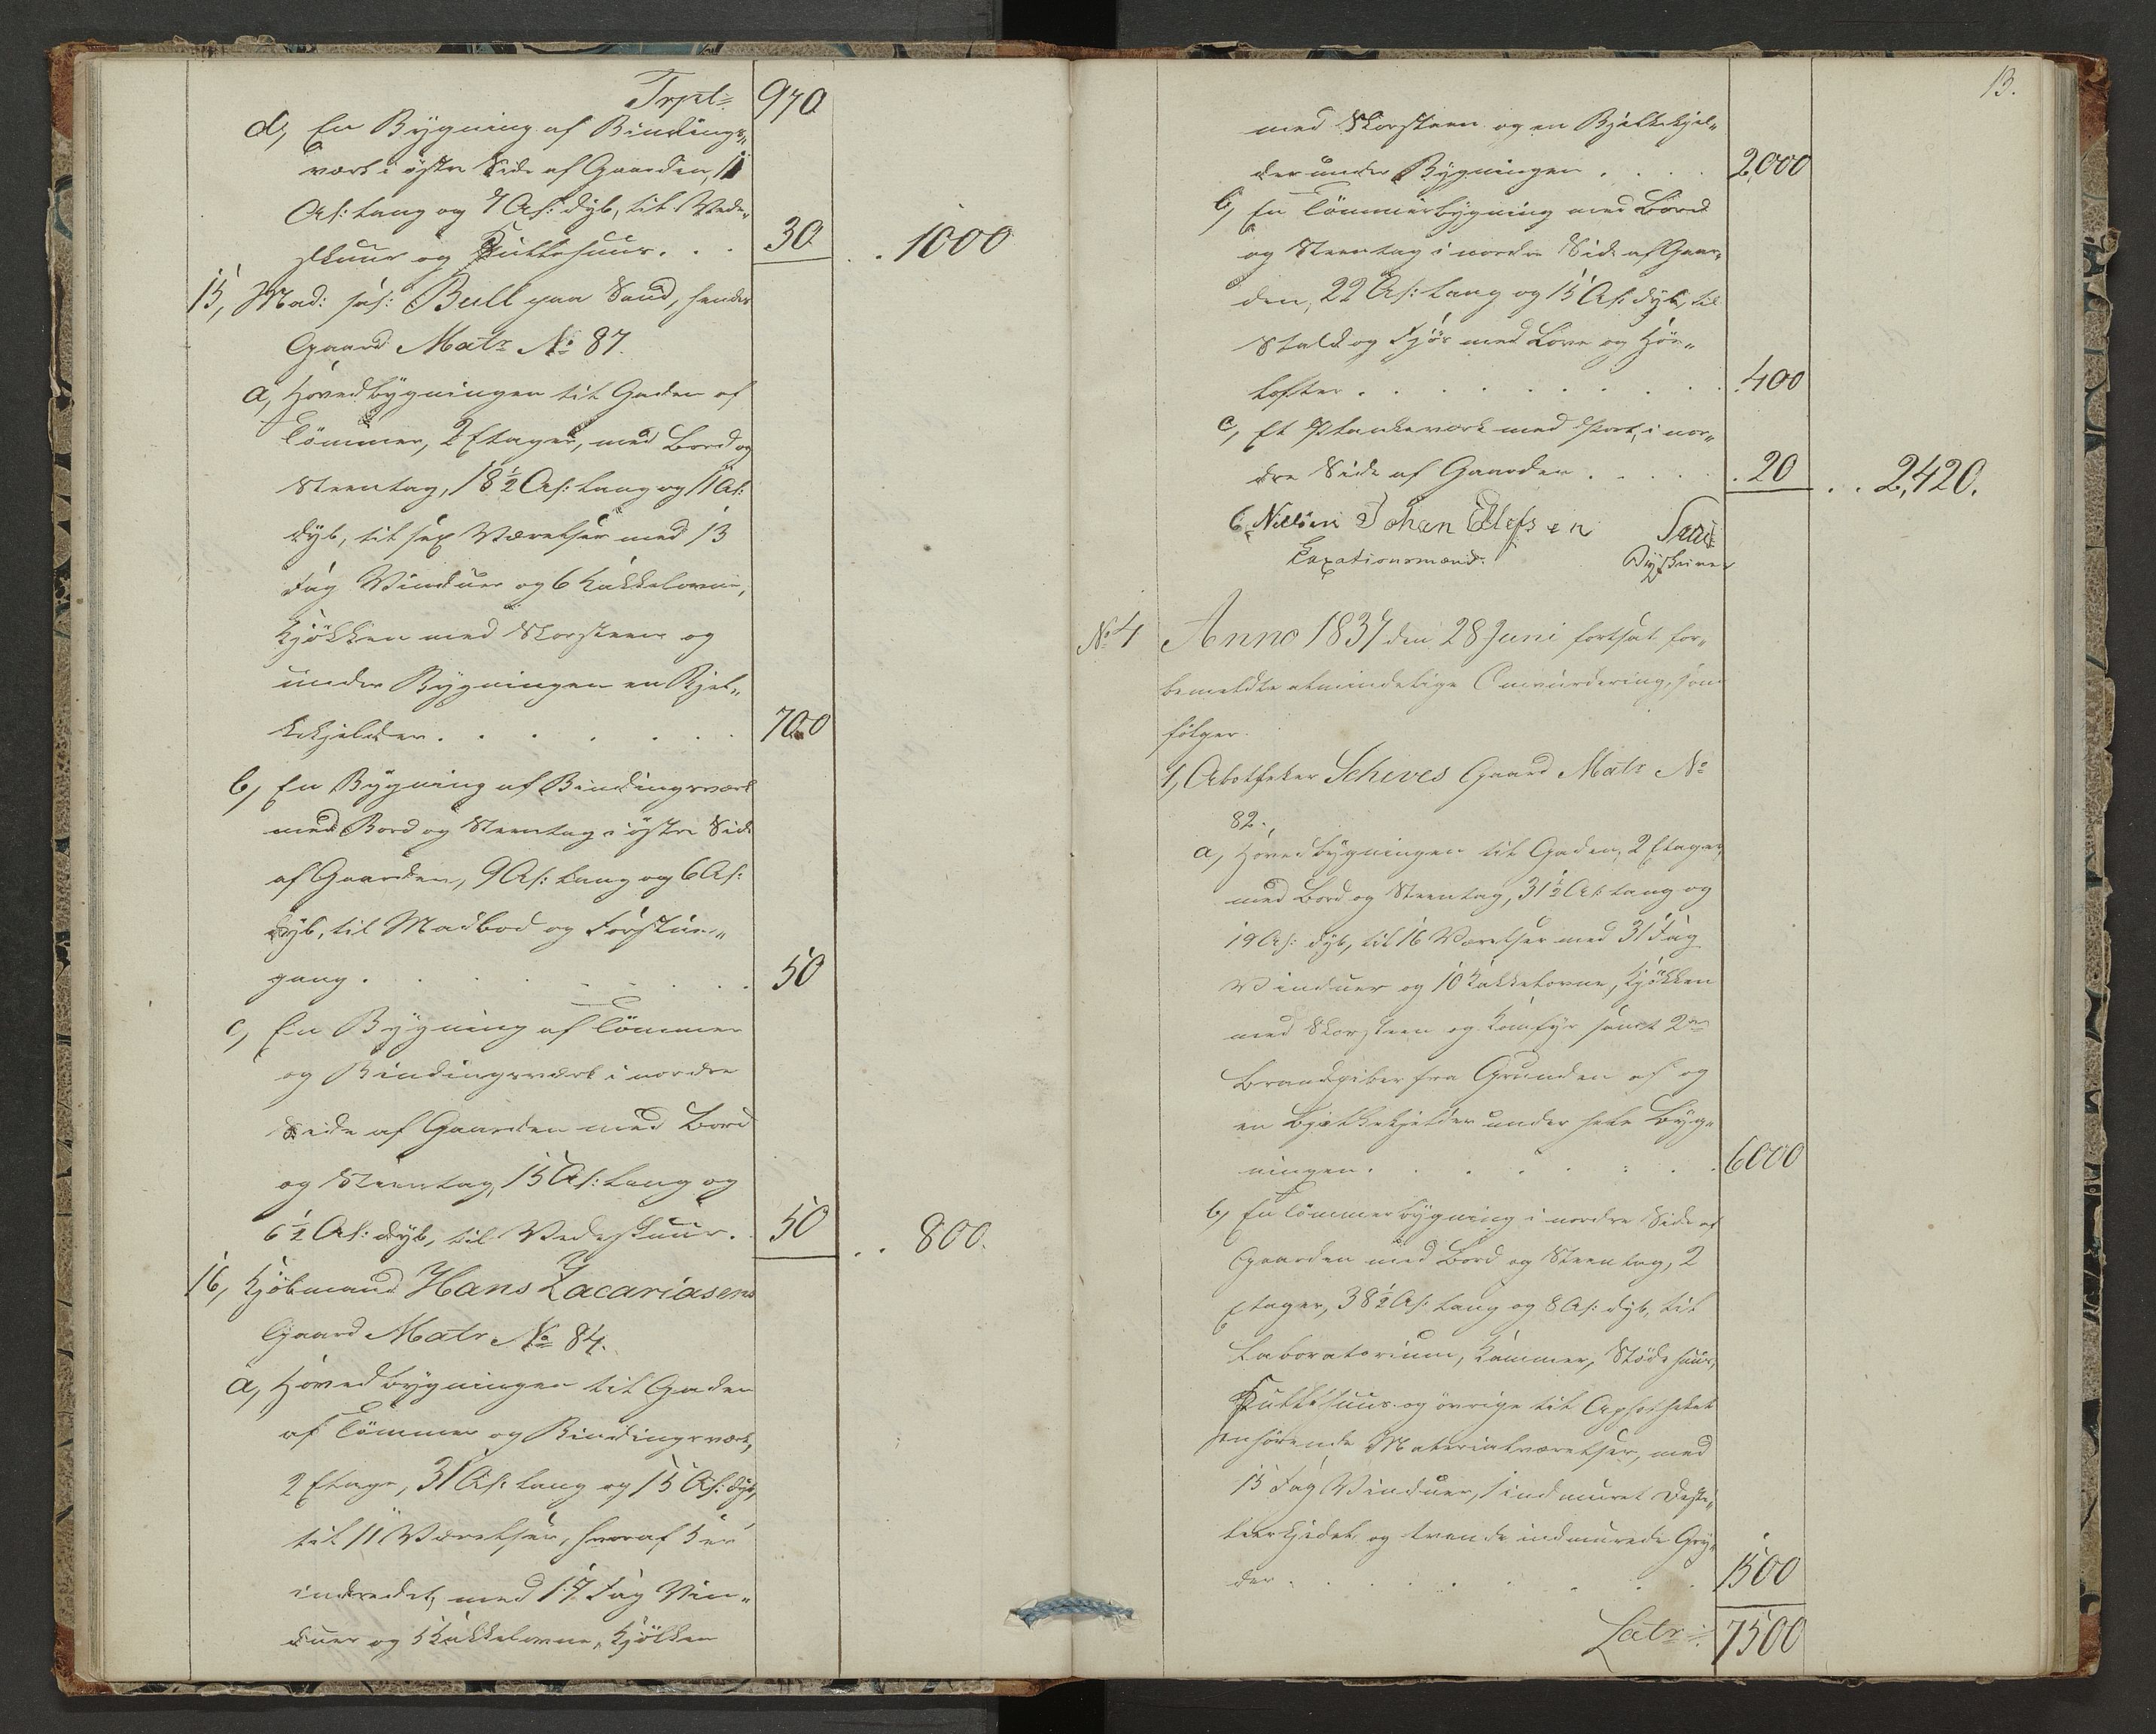 Trpt. 970
d, En Bygning af Bindings„
værk i östre Side af Gaarden, 11
Al: lang og 7 Al: dyb, til Vede„
skuur og Rullehuus. . . 30 . . 1000
15, Mad: sal: Bull paa Sand, hendes
Gaard Matr No 87.
a, Hovedbygningen til Gaden af
Tömmer, 2 Etager, med Bord og
Steentag, 18½ Al: lang og 11 Al:
dyb, til sex Værelser med 13
Fag Vinduer og 6 Kakkelovne,
Kjökken med Skorsteen og
under Bygningen en Bjel„
kekjelder . . . . . . 700
b, En Bygning af Bindingsværk
med Bord og Steentag i östre Side
af Gaarden, 9 Al: lang og 6 Al:
dyb, til Madbod og Forstue„
gang . . . . . . . 50
c, En Bygning af Tömmer
og Bindingsværk i nordre
Side af Gaarden med Bord
og Steentag, 15 Al: lang og
6½ Al: dyb, til Vedeskuur. 50 . . 800.
16, Kjöbmand Hans Zacariasens
Gaard Matr No 84.
a, Hovedbygningen til Gaden
af Tömmer og Bindingsværk,
2 Etage, 31 Al: lang og 15 Al: dyb,
til 11 Værelser, hvoraf 5 er
indredet, med 17 Fag Vin„
duer og 5 Kakkelovne, Kjökken
13.
med Skorsteen og en Bjelkekjel„
der under Bygningen . . . . 2,000
b, En Tömmerbygning med Bord
og Steentag i nordre Side af Gaar„
den, 22 Al: lang og 15 Al: dyb, til
Stald og Fjös med Love og Höe„
lofter . . . . . . . . 400
c, Et Plankeværk med Port, i nor„
dre Side af Gaarden . . . . 20 . . 2,420.
C. Johan Ellefsen
Taxationsmænd. Byskriver
No 4 Anno 1837 den 28 Juni fortsat for„
bemeldte almindelige Omvurdering, som
fölger.
1, Abotheker Schives Gaard Matr No
82.
a, Hovedbygningen til Gaden, 2 Etager,
med Bord og Steentag, 31½ Al: lang og
19 Al: dyb, til 16 Værelser med 31 Fag
Vinduer og 10 Kakkelovne, Kjökken
med Skorsteen og Komfyr samt 2de
Brandpiber fra Grunden af og
en Bjelkekjelder under hele Byg„
ningen . . . . . . . 6000
b, En Tömmerbygning i nordre Side af
Gaarden med Bord og Steentag, 2
Etager, 38½ Al: lang og 8 Al: dyb, til
Laboratorium, Kammer, Stödehuus,
Rullehuus og övrige til Apotheket
henhörende Materialværelser, med
15 Fag Vinduer, 1 indmuret Desti„
leerkjedel og tvende indmurede Gry„
der . . . . . . . . 1500
Latr: 7500